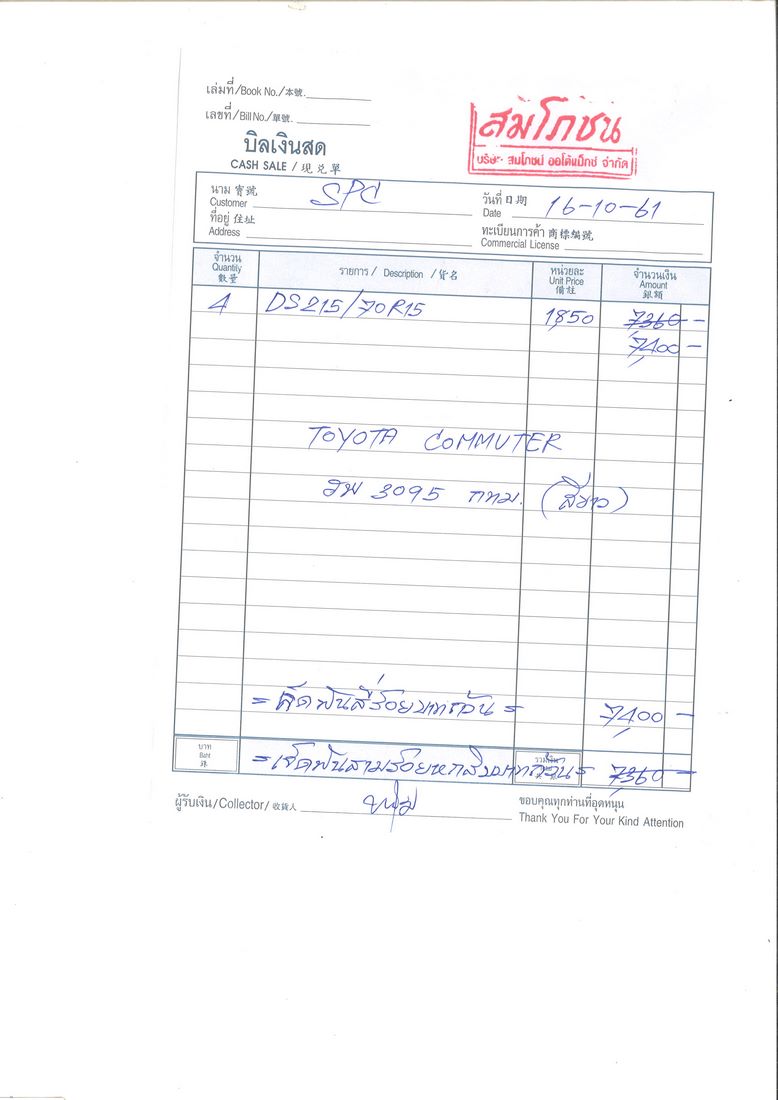 เล่มที่/Book No./本號.
เลขที่/Bill No./單號.
บิลเงินสด
CASH SALE / 現兑單
สมโภชน์
บริษัท สมโภชน์ ออโต้แม็กซ์ จำกัด
นาม 寶號 Customer SPC
วันที่ 日期 Date 16-10-61
ที่อยู่ 住址 Address
ทะเบียนการค้า 商標編號 Commercial License
จำนวน Quantity 數量 รายการ / Description / 貨名 หน่วยละ Unit Price 備註 จำนวนเงิน Amount 銀額
4 DS 215/70R15 1850 7360 -
7400 -
TOYOTA COMMUTER
3095 กทม. (สีขาว)
= เจ็ดพันสี่ร้อยบาทถ้วน = 7400 -
บาท Baht 銖 = เจ็ดพันสามร้อยหกสิบบาทถ้วน = รวมเงิน 7360 -
ผู้รับเงิน/Collector/收貨人
ขอบคุณทุกท่านที่อุดหนุน
Thank You For Your Kind Attention